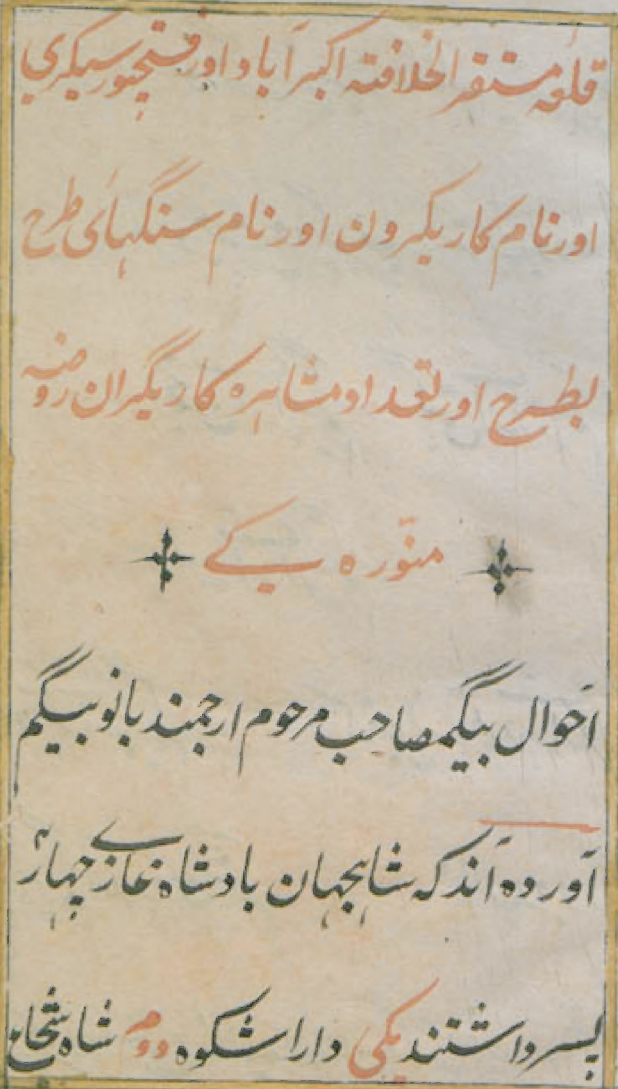 قلعه مستقر الخلافته اکبرآباد اور فتحپور سیکری
اور نام کاریگرون اور نام سنگهائی طرح
بطرح اور تعداد مشاہرہ کاریگران روضہ
منوّرہ کے
احوال بیگمصاحب مرحوم ارجمند بانو بیگم
آورده اند که شاہجہان بادشاہ غازے چہار
پسر داشتند یکی داراشکوہ دوم شاہ شجاع